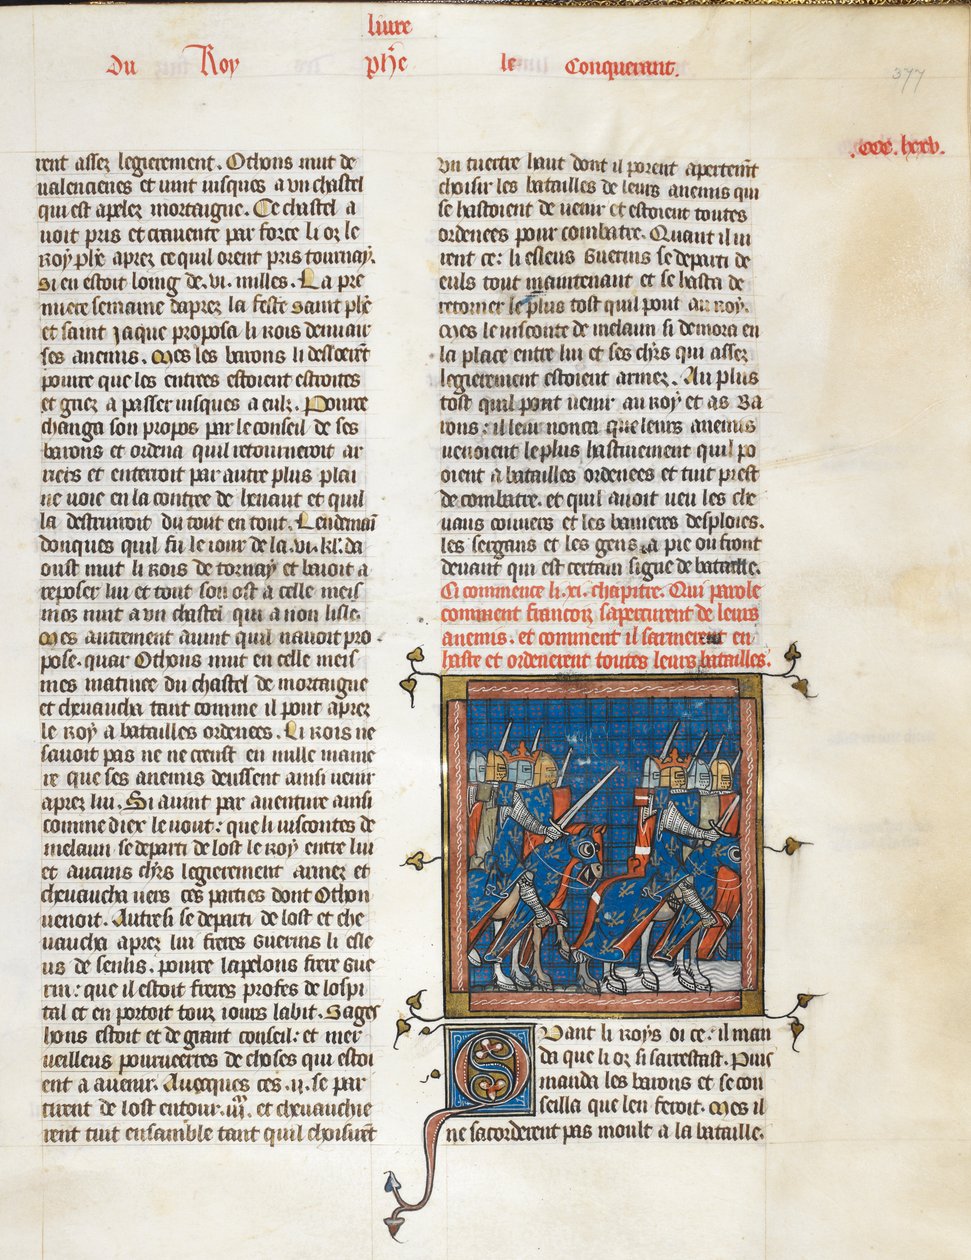 liure
du Roy phe le Conquerant.
377
.ccc. lxxv.
rent assez legierement. Othons mut de
valencienes et vint iusques a vn chastel
qui est apelez mortaigne. Ce chastel a
uoit pris et crauente par force li oz le
Roy phe aprez ce quil orent pris tournay.
si en estoit loing de .vi. milles. La pre
miere semaine daprez la feste saint phe
et saint Jaque proposa li rois denuair
ses anemis. Mes les barons li desloerent
pource que les entrees estoient estroites
et griez a passer iusques a eulz. Pource
changa son propos par le conseil de ses
barons et ordena quil retourneroit ar
riers et enterroit par autre plus plai
ne voie en la contree de henaut et quil
la destruiroit du tout en tout. Lendemain
donques quil fu le iour de la .vi. kl. da
oust mut li rois de tornay et baoit a
reposer lui et tout son ost a celle meis
mes nuit a vn chastel qui a non lisle.
Mes autrement auint quil nauoit pro
pose. quar Othons mut en celle meis
mes matinee du chastel de mortaigne
et cheuaucha tant comme il pout aprez
le roy a batailles ordenees. Li rois ne
sauoit pas ne ne creust en nulle manie
re que ses anemis deussent ainsi uenir
aprez lui. Si auint par auenture ainsi
comme diex le vout: que li viscontes de
melaun se departi de lost le roy entre lui
et aucuns chrs legierement armez et
cheuaucha uers ces parties dont Othon
uenoit. Autresi se departi de lost et che
uaucha aprez lui freres Guerins li esle
us de senlis. pource lapelons frere Gue
rin: que il estoit freres profes de lospi
tal et en portoit touz iours labit. Sages
hons estoit et de grant conseil: et mer
ueilleus pourueerres de choses qui estoi
ent a auenir. Auecques ces .ii. se par
tirent de lost entour .iii. et cheuauchie
rent tuit ensamble tant quil choisirent
vn tuertre haut dont il porent apertement
choisir les batailles de leurs anemis qui
se hastoient de uenir et estoient toutes
ordenees pour combatre. Quant il ui
rent ce: li esleus Guerins se departi de
euls tout maintenant et se hasta de
retorner le plus tost quil pout au roy.
Mes le uisconte de melaun si demora en
la place entre lui et ses chrs qui assez
legierement estoient armez. Au plus
tost quil pout uenir au roy et as ba
rons: il leur nonca que leurs anemis
uenoient le plus hastiuement quil po
oient a batailles ordenees et tuit prest
de combatre. et quil auoit ueu les che
uaus couuers et les banieres desploies.
les sergans et les gens a pie ou front
deuant qui est certain signe de bataille.
Ci commence li .xi. chapitre. Qui parole
comment francois saperceurent de leurs
anemis. et comment il sarmerent en
haste et ordenerent toutes leurs batailles.
Quant li roys oi ce: il man
da que li oz si sarrestast. Puis
manda les barons et se con
seilla que len feroit. Mes il
ne sacorderent pas moult a la bataille.